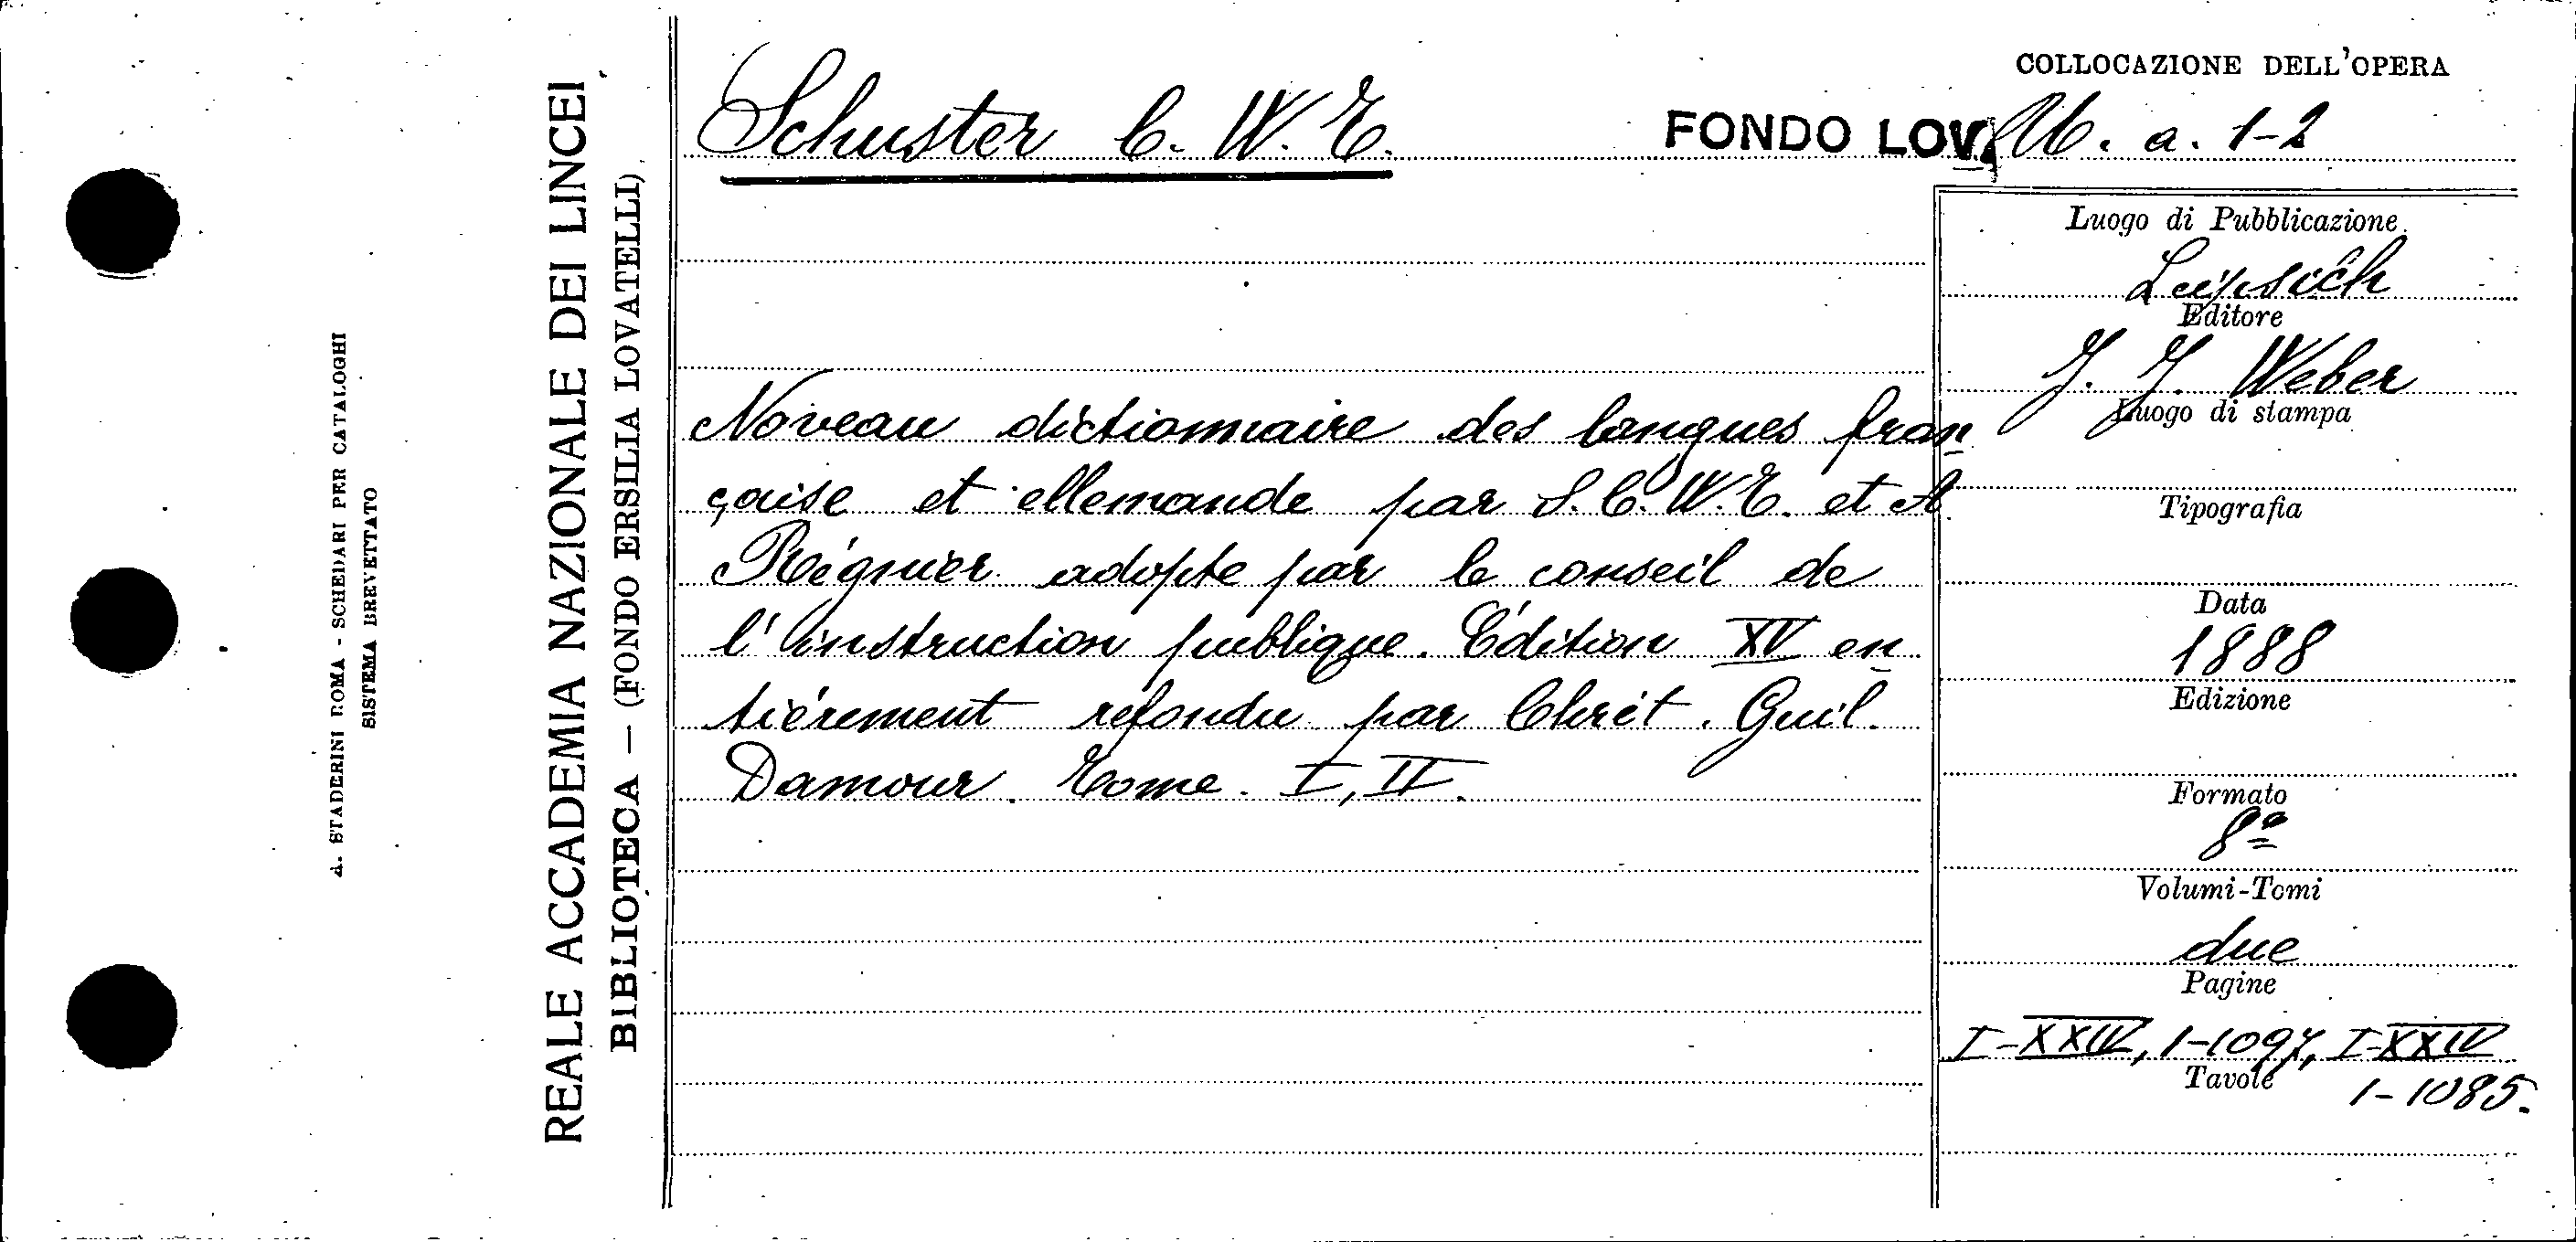 COLLOCAZIONE DELL'OPERA
Schuster C. W. E.
FONDO LOV. M. a. 1-2
Noveau dictionnaire des langues fran
çaise et ellemande par S. C. W. E. et A.
Régnier adopte par le conseil de
l'instruction publique. Édition XV en
tiérement refondu par Chrét. Guil.
Damour. Tome. I, II.
Luogo di Pubblicazione
Leipsich
Editore
J. J. Weber
Luogo di stampa
Tipografia
Data
1888
Edizione
Formato
8º
Volumi-Tomi
due
Pagine
I-XXIV, 1-1097, I-XXIV
1-1085.
Tavole
REALE ACCADEMIA NAZIONALE DEI LINCEI
BIBLIOTECA — (FONDO ERSILIA LOVATELLI)
A. STADERINI ROMA - SCHEDARI PER CATALOGHI
SISTEMA BREVETTATO